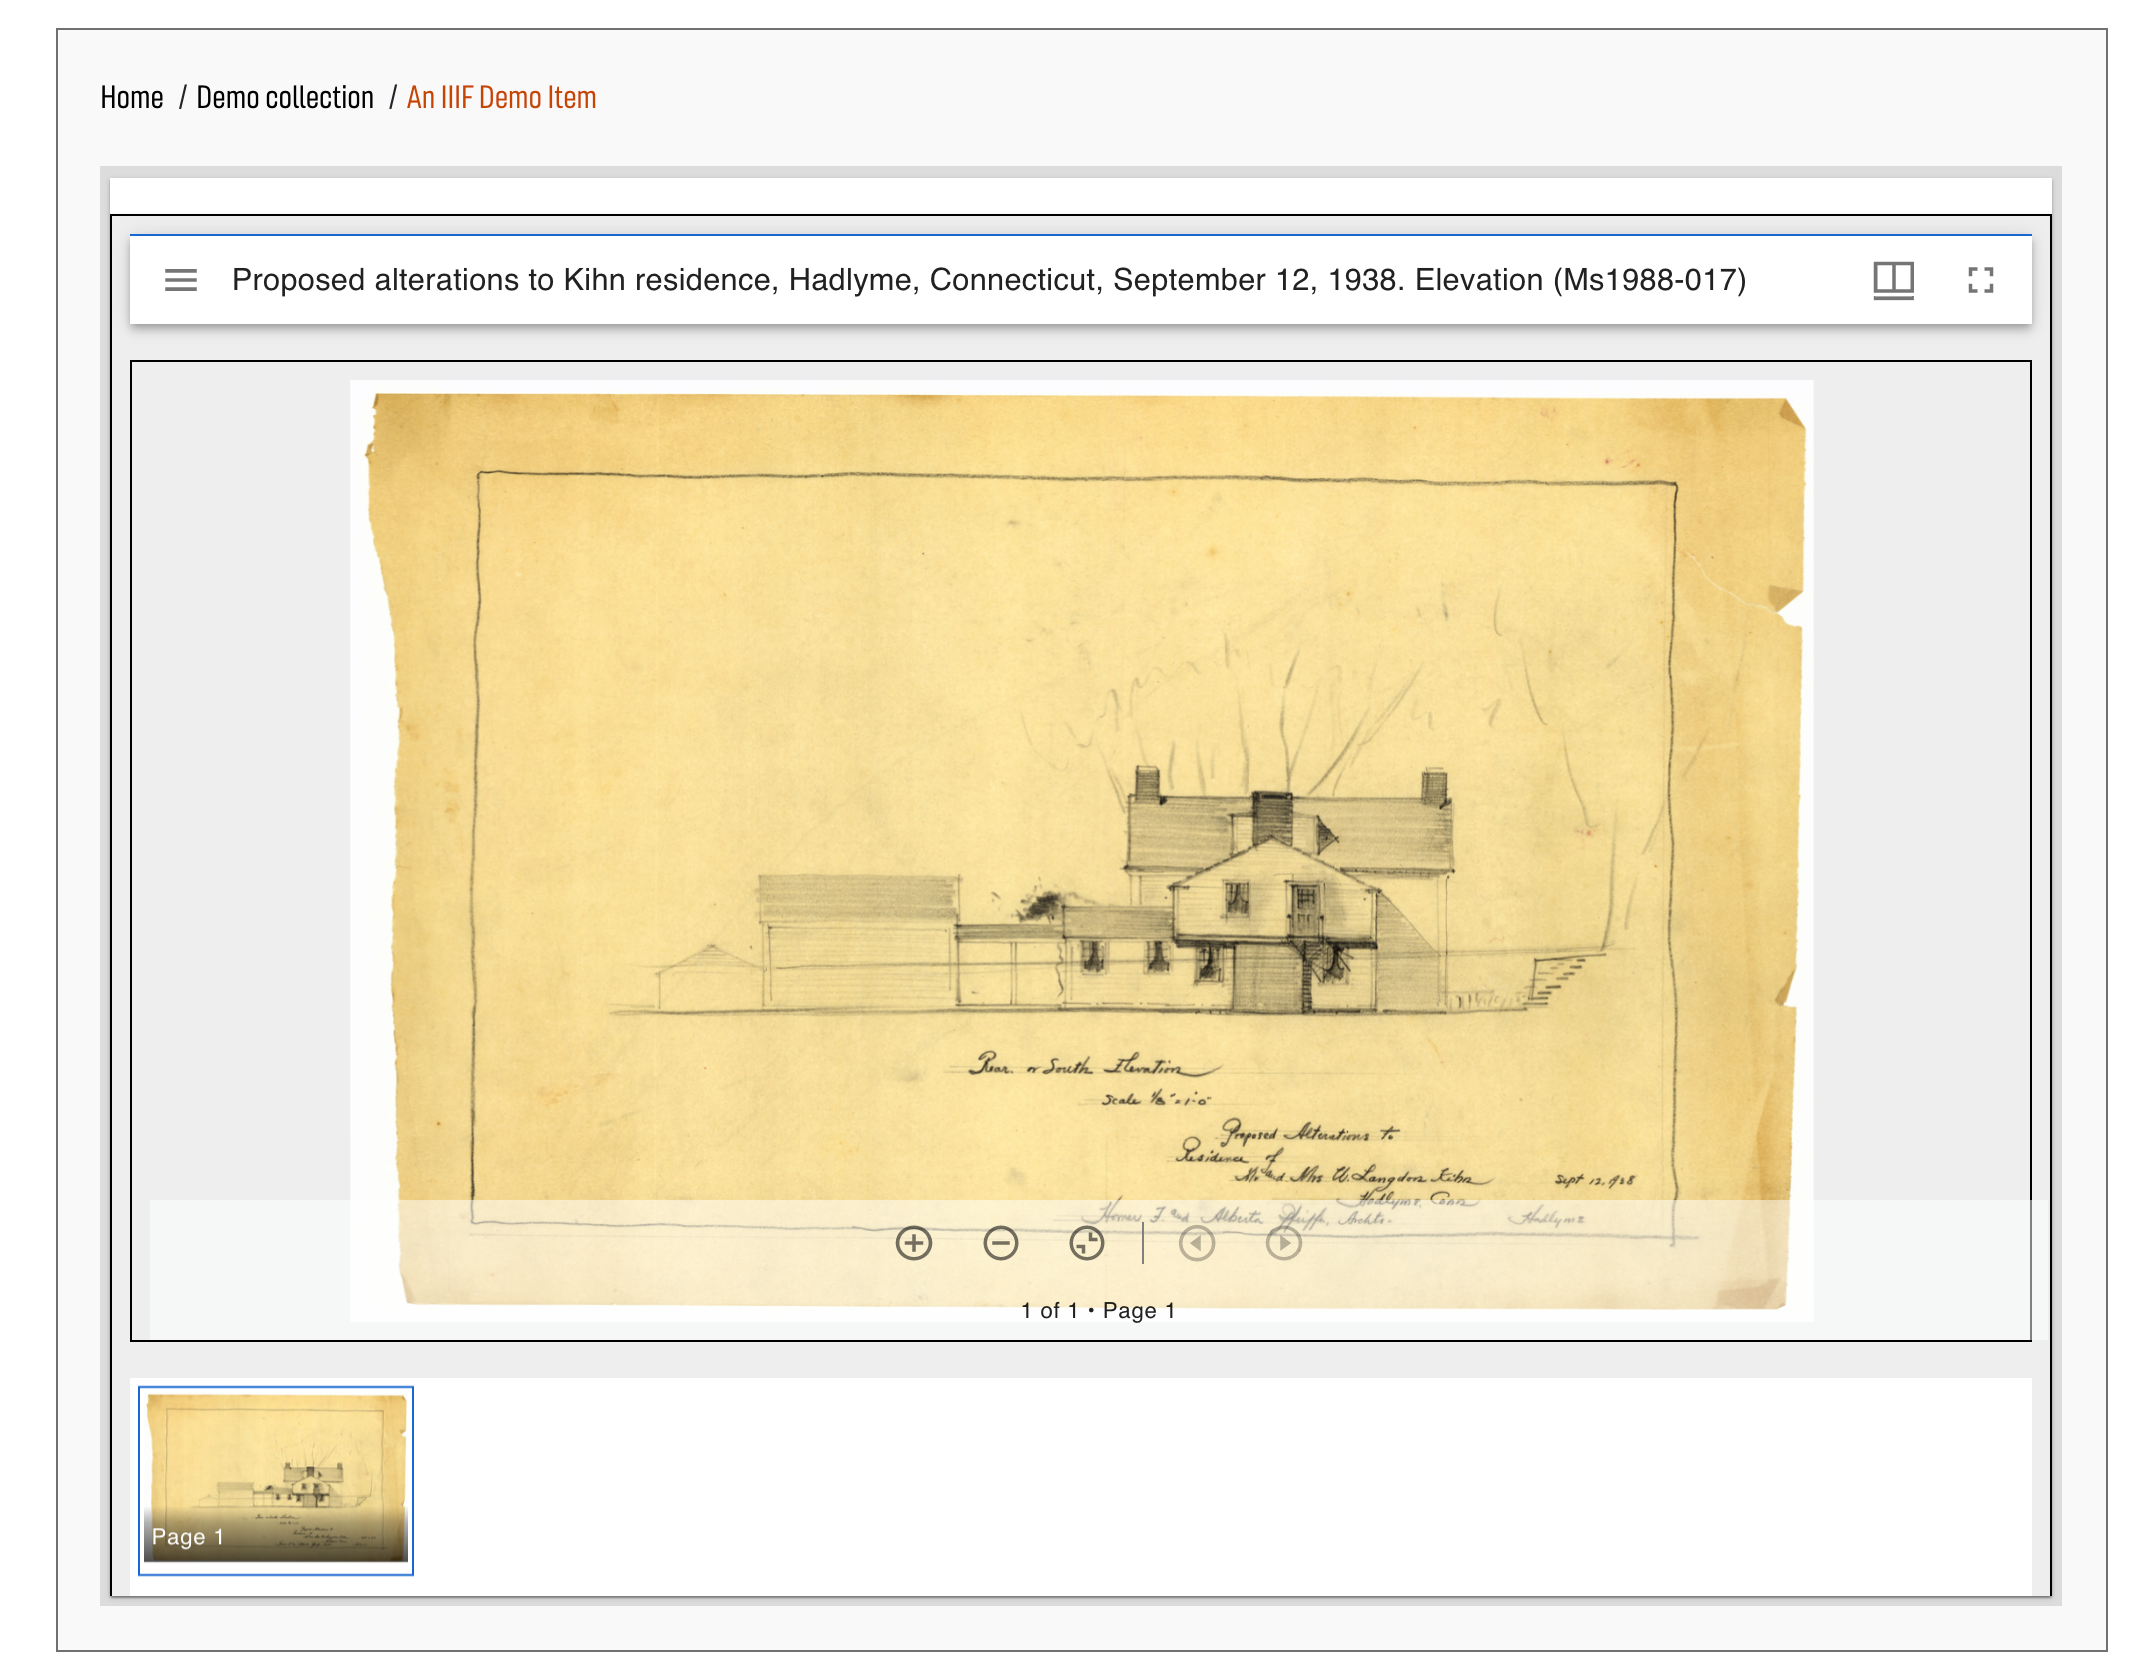 Home / Demo collection / An IIIF Demo Item
Proposed alterations to Kihn residence, Hadlyme, Connecticut, September 12, 1938. Elevation (Ms1988-017)
Rear or South Elevation
Scale 1/8" = 1'-0"
Proposed Alterations to
Residence of
Mr and Mrs W. Langdon Kihn
Sept 12, 1938
Hadlyme, Conn
Homer F. and Alberta Pfeiffer, Archts.
Hadlyme
1 of 1 • Page 1
Page 1